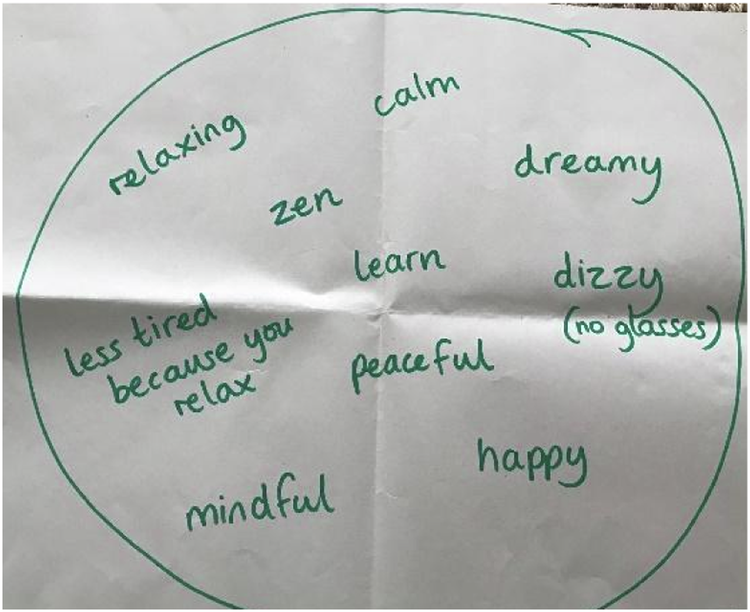 calm
relaxing
dreamy
zen
learn
dizzy
(no glasses)
less tired
because you
relax
peaceful
happy
mindful